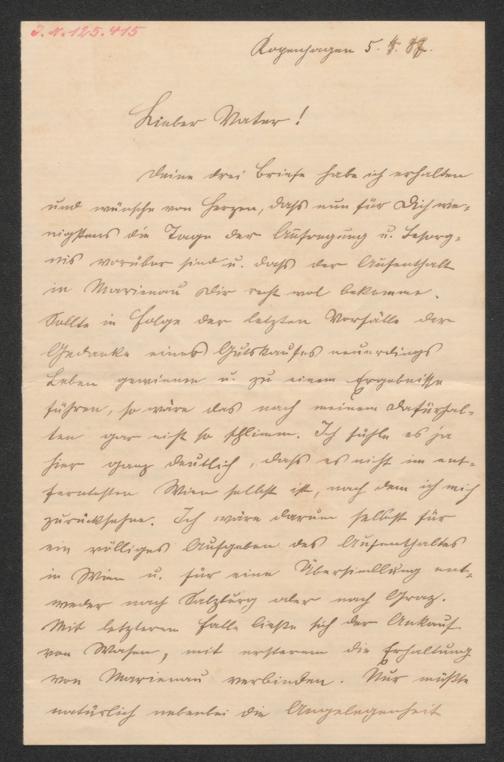 J.N.125.415
Kopenhagen 5. 8. 87.
Lieber Vater!
Deine drei Briefe habe ich erhalten
und wünsche von Herzen, dass nun für Dich we-
nigstens die Tage der Aufregung u. Besorg-
nis vorüber sind u. dass der Aufenthalt
in Marienau Dir recht wol bekomme.
Sollte in Folge der letzten Vorfälle der
Gedanke eines Gutskaufes neuerdings
Leben gewinnen u. zu einem Ergebnisse
führen, so wäre das nach meinem Dafürhal-
ten gar nicht so schlimm. Ich fühle es ja
hier ganz deutlich, dass es nicht im ent-
ferntesten Wien selbst ist, nach dem ich mich
zurücksehne. Ich wäre darum selbst für
ein völliges Aufgeben des Aufenthaltes
in Wien u. für eine Übersiedlung ent-
weder nach Salzburg oder nach Graz.
Mit letzterem Falle ließe sich der Ankauf
von Wasen, mit ersterem die Erhaltung
von Marienau verbinden. Nur müßte
natürlich nebenbei die Angelegenheit